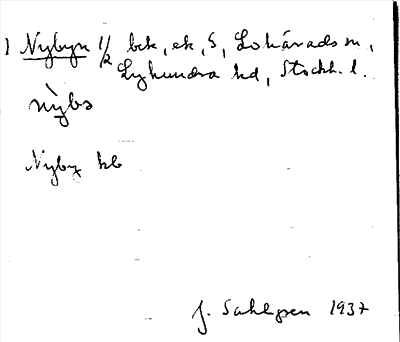 1 Nybyn 1/2 bek, ek, S, Lohärads sn,
Lyhundra hd, Stockh. l.
nỳbə
Nyby kb
J. Sahlgren 1937